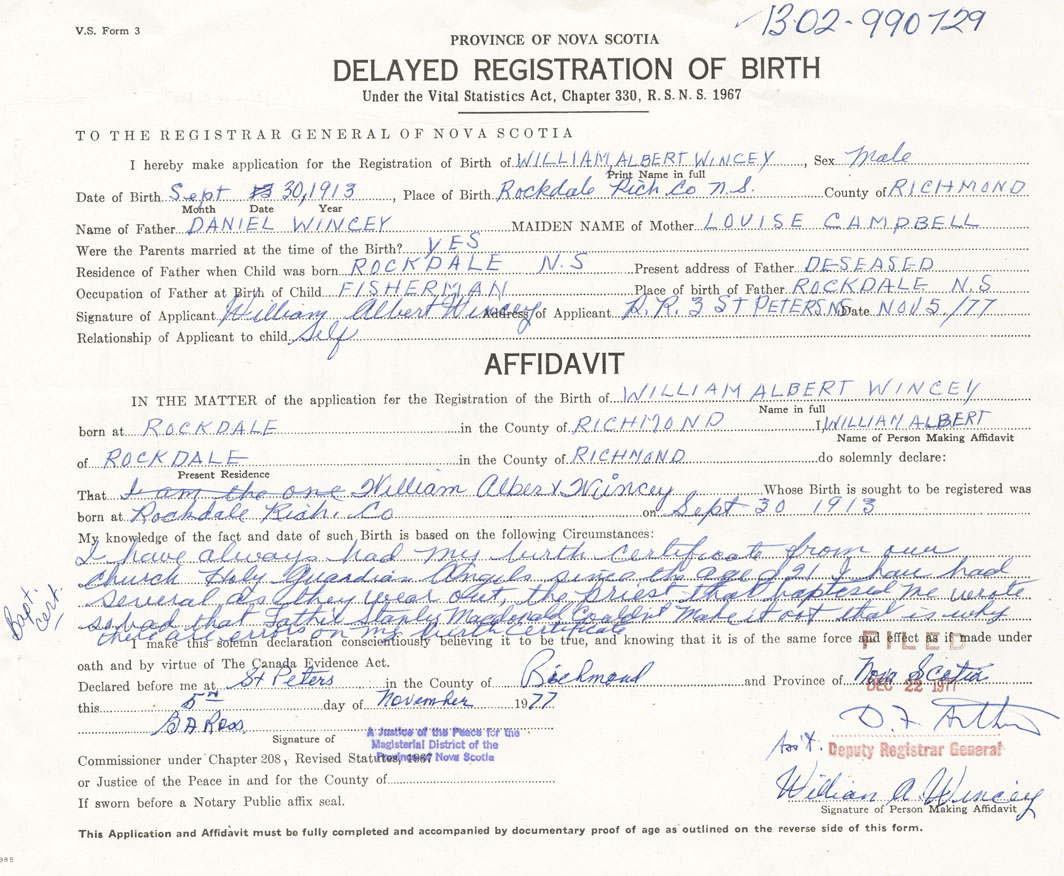 V.S. Form 3
13-02-990729
PROVINCE OF NOVA SCOTIA
DELAYED REGISTRATION OF BIRTH
Under the Vital Statistics Act, Chapter 330, R.S.N.S. 1967
TO THE REGISTRAR GENERAL OF NOVA SCOTIA
I hereby make application for the Registration of Birth of WILLIAM ALBERT WINCEY, Sex Male
Print Name in full
Date of Birth Sept 30, 1913, Place of Birth Rockdale Rich Co N.S. County of RICHMOND
Month Date Year
Name of Father DANIEL WINCEY MAIDEN NAME of Mother LOUISE CAMPBELL
Were the Parents married at the time of the Birth? YES
Residence of Father when Child was born ROCKDALE N.S Present address of Father DESEASED
Occupation of Father at Birth of Child FISHERMAN Place of birth of Father ROCKDALE N.S
Signature of Applicant William Albert Wincey Address of Applicant R.R. 3 ST PETERS. N.S Date NOV 5/77
Relationship of Applicant to child Self
AFFIDAVIT
IN THE MATTER of the application for the Registration of the Birth of WILLIAM ALBERT WINCEY
Name in full
born at ROCKDALE in the County of RICHMOND I, WILLIAM ALBERT
Name of Person Making Affidavit
of ROCKDALE in the County of RICHMOND do solemnly declare:
Present Residence
That I am the one William Albert Wincey Whose Birth is sought to be registered was
born at Rockdale Rich. Co on Sept 30 1913
My knowledge of the fact and date of such Birth is based on the following Circumstances:
I have always had my birth certificate from our
church Holy Guardian Angels since the age of 21 I have had
several as they wear out, the priest that baptesed me wrote
so bad that Father Stanly Macdonald Couldnt make it out that is why
there are errors on my birth certificate
Bapt. cert.
I make this solemn declaration conscientiously believing it to be true, and knowing that it is of the same force and effect as if made under
FILED
oath and by virtue of The Canada Evidence Act.
Declared before me at St Peters in the County of Richmond and Province of Nova Scotia
DEC 22 1977
this 5th day of November 1977
B A Ross
D. F. Arthur
Signature of
A Justice of the Peace for the
Magisterial District of the
Province of Nova Scotia
Ass't. Deputy Registrar General
Commissioner under Chapter 208, Revised Statutes, 1967
or Justice of the Peace in and for the County of
William A. Wincey
Signature of Person Making Affidavit
If sworn before a Notary Public affix seal.
This Application and Affidavit must be fully completed and accompanied by documentary proof of age as outlined on the reverse side of this form.